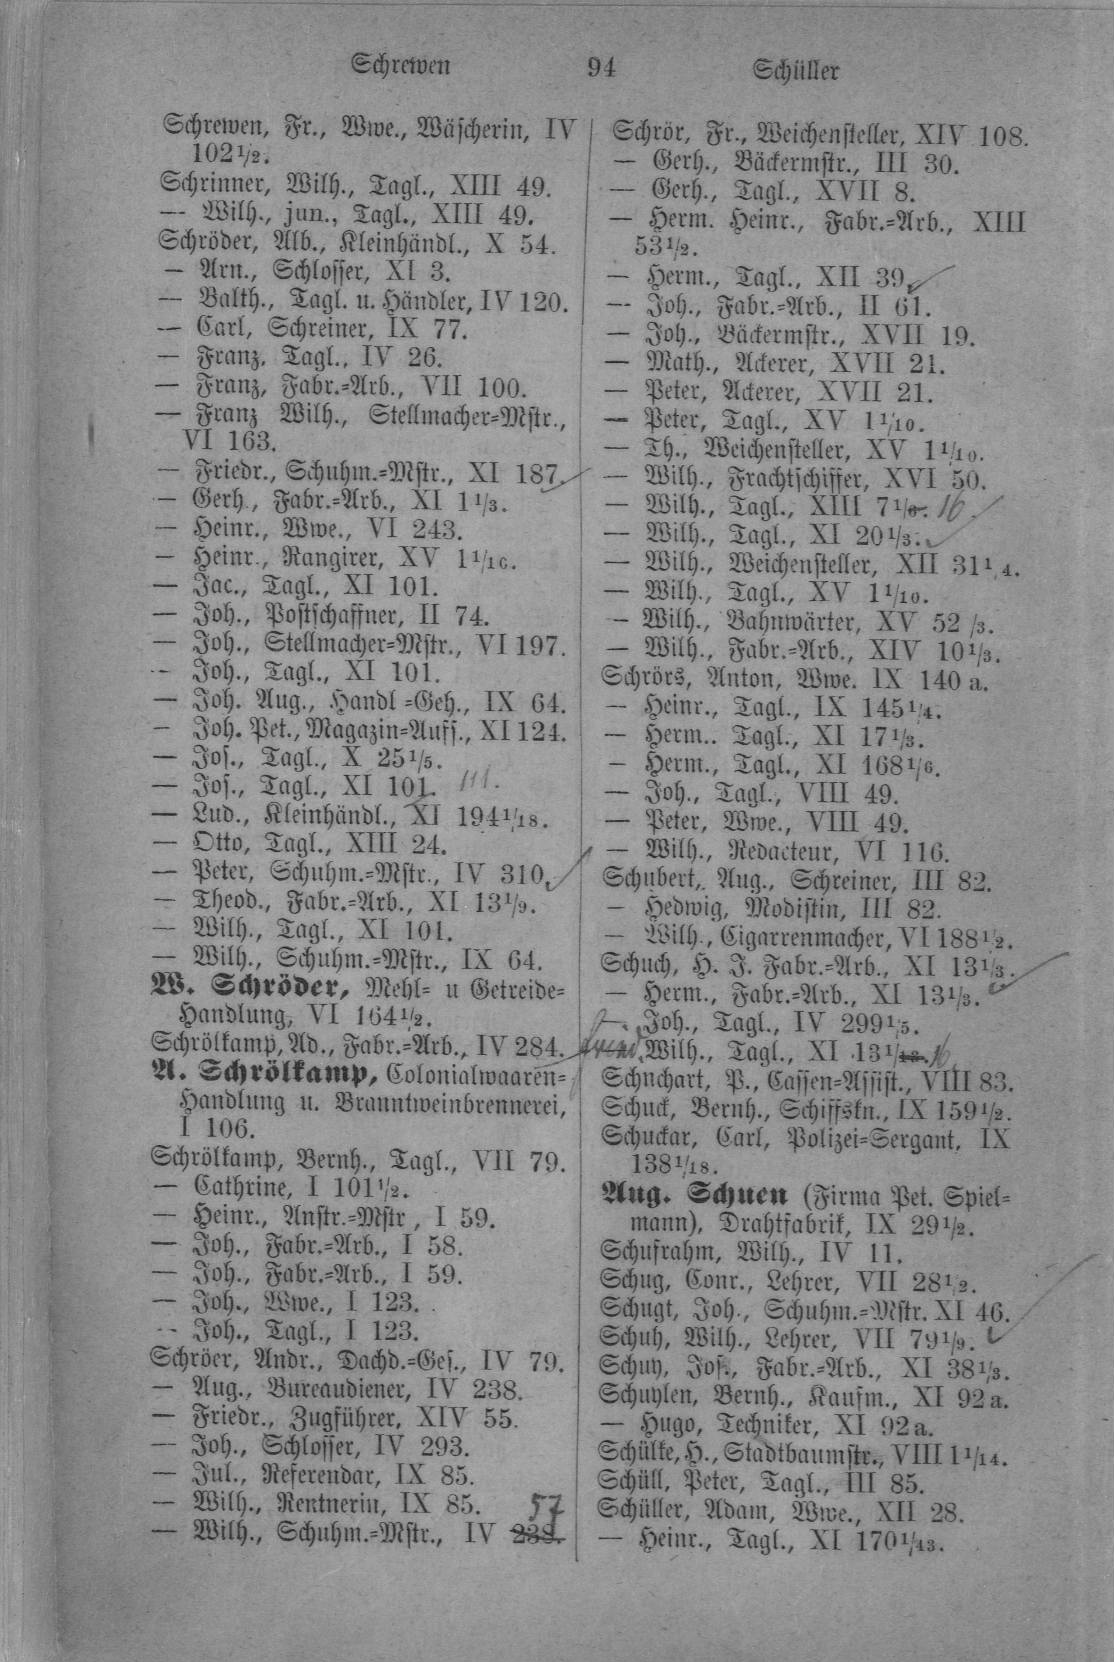 Schrewen 94 Schüller
Schrewen, Fr., Wwe., Wäscherin, IV
102 1/2.
Schrinner, Wilh., Tagl., XIII 49.
— Wilh., jun., Tagl., XIII 49.
Schröder, Alb., Kleinhändl., X 54.
— Arn., Schlosser, XI 3.
— Balth., Tagl. u. Händler, IV 120.
— Carl, Schreiner, IX 77.
— Franz, Tagl., IV 26.
— Franz, Fabr.=Arb., VII 100.
— Franz Wilh., Stellmacher=Mstr.,
VI 163.
— Friedr., Schuhm.=Mstr., XI 187.
— Gerh., Fabr.=Arb., XI 1 1/3.
— Heinr., Wwe., VI 243.
— Heinr., Rangirer, XV 1 1/10.
— Jac., Tagl., XI 101.
— Joh., Postschaffner, II 74.
— Joh., Stellmacher=Mstr., VI 197.
— Joh., Tagl., XI 101.
— Joh. Aug., Handl =Geh., IX 64.
— Joh. Pet., Magazin=Auff., XI 124.
— Jos., Tagl., X 25 1/5.
— Jos., Tagl., XI 101. 111.
— Lud., Kleinhändl., XI 194 1/18.
— Otto, Tagl., XIII 24.
— Peter, Schuhm.=Mstr., IV 310.
— Theod., Fabr.=Arb., XI 13 1/9.
— Wilh., Tagl., XI 101.
— Wilh., Schuhm.=Mstr., IX 64.
W. Schröder, Mehl= u Getreide=
Handlung, VI 164 1/2.
Schrölkamp, Ad., Fabr.=Arb., IV 284.
A. Schrölkamp, Colonialwaaren=
Handlung u. Branntweinbrennerei,
I 106.
Schrölkamp, Bernh., Tagl., VII 79.
— Cathrine, I 101 1/2.
— Heinr., Anstr.=Mstr, I 59.
— Joh., Fabr.=Arb., I 58.
— Joh., Fabr.=Arb., I 59.
— Joh., Wwe., I 123.
— Joh., Tagl., I 123.
Schröer, Andr., Dachd.=Ges., IV 79.
— Aug., Bureaudiener, IV 238.
— Friedr., Zugführer, XIV 55.
— Joh., Schlosser, IV 293.
— Jul., Referendar, IX 85.
— Wilh., Rentnerin, IX 85. 57
— Wilh., Schuhm.=Mstr., IV 238.
Schrör, Fr., Weichensteller, XIV 108.
— Gerh., Bäckermstr., III 30.
— Gerh., Tagl., XVII 8.
— Herm. Heinr., Fabr.=Arb., XIII
53 1/2.
— Herm., Tagl., XII 39.
— Joh., Fabr.=Arb., II 61.
— Joh., Bäckermstr., XVII 19.
— Math., Ackerer, XVII 21.
— Peter, Ackerer, XVII 21.
— Peter, Tagl., XV 1 1/10.
— Th., Weichensteller, XV 1 1/10.
— Wilh., Frachtschiffer, XVI 50.
— Wilh., Tagl., XIII 7 1/6. 16
— Wilh., Tagl., XI 20 1/3.
— Wilh., Weichensteller, XII 31 1/4.
— Wilh., Tagl., XV 1 1/10.
— Wilh., Bahnwärter, XV 52 /3.
— Wilh., Fabr.=Arb., XIV 10 1/3.
Schrörs, Anton, Wwe. IX 140 a.
— Heinr., Tagl., IX 145 1/4.
— Herm.. Tagl., XI 17 1/3.
— Herm., Tagl., XI 168 1/6.
— Joh., Tagl., VIII 49.
— Peter, Wwe., VIII 49.
— Wilh., Redacteur, VI 116.
Schubert, Aug., Schreiner, III 82.
— Hedwig, Modistin, III 82.
— Wilh., Cigarrenmacher, VI 188 1/2.
Schuch, H. J. Fabr.=Arb., XI 13 1/3.
— Herm., Fabr.=Arb., XI 13 1/3.
— Joh., Tagl., IV 299 1/5.
Wilh., Tagl., XI 13 1/18. 16
Schuchart, P., Cassen=Assist., VIII 83.
Schuck, Bernh., Schiffskn., IX 159 1/2.
Schuckar, Carl, Polizei=Sergant, IX
138 1/18.
Aug. Schuen (Firma Pet. Spiel=
mann), Drahtfabrik, IX 29 1/2.
Schufrahm, Wilh., IV 11.
Schug, Conr., Lehrer, VII 28 1/2.
Schugt, Joh., Schuhm.=Mstr. XI 46.
Schuh, Wilh., Lehrer, VII 79 1/9.
Schuy, Jos., Fabr.=Arb., XI 38 1/3.
Schuylen, Bernh., Kaufm., XI 92 a.
— Hugo, Techniker, XI 92 a.
Schülke, H., Stadtbaumstr., VIII 1 1/14.
Schüll, Peter, Tagl., III 85.
Schüller, Adam, Wwe., XII 28.
— Heinr., Tagl., XI 170 1/43.